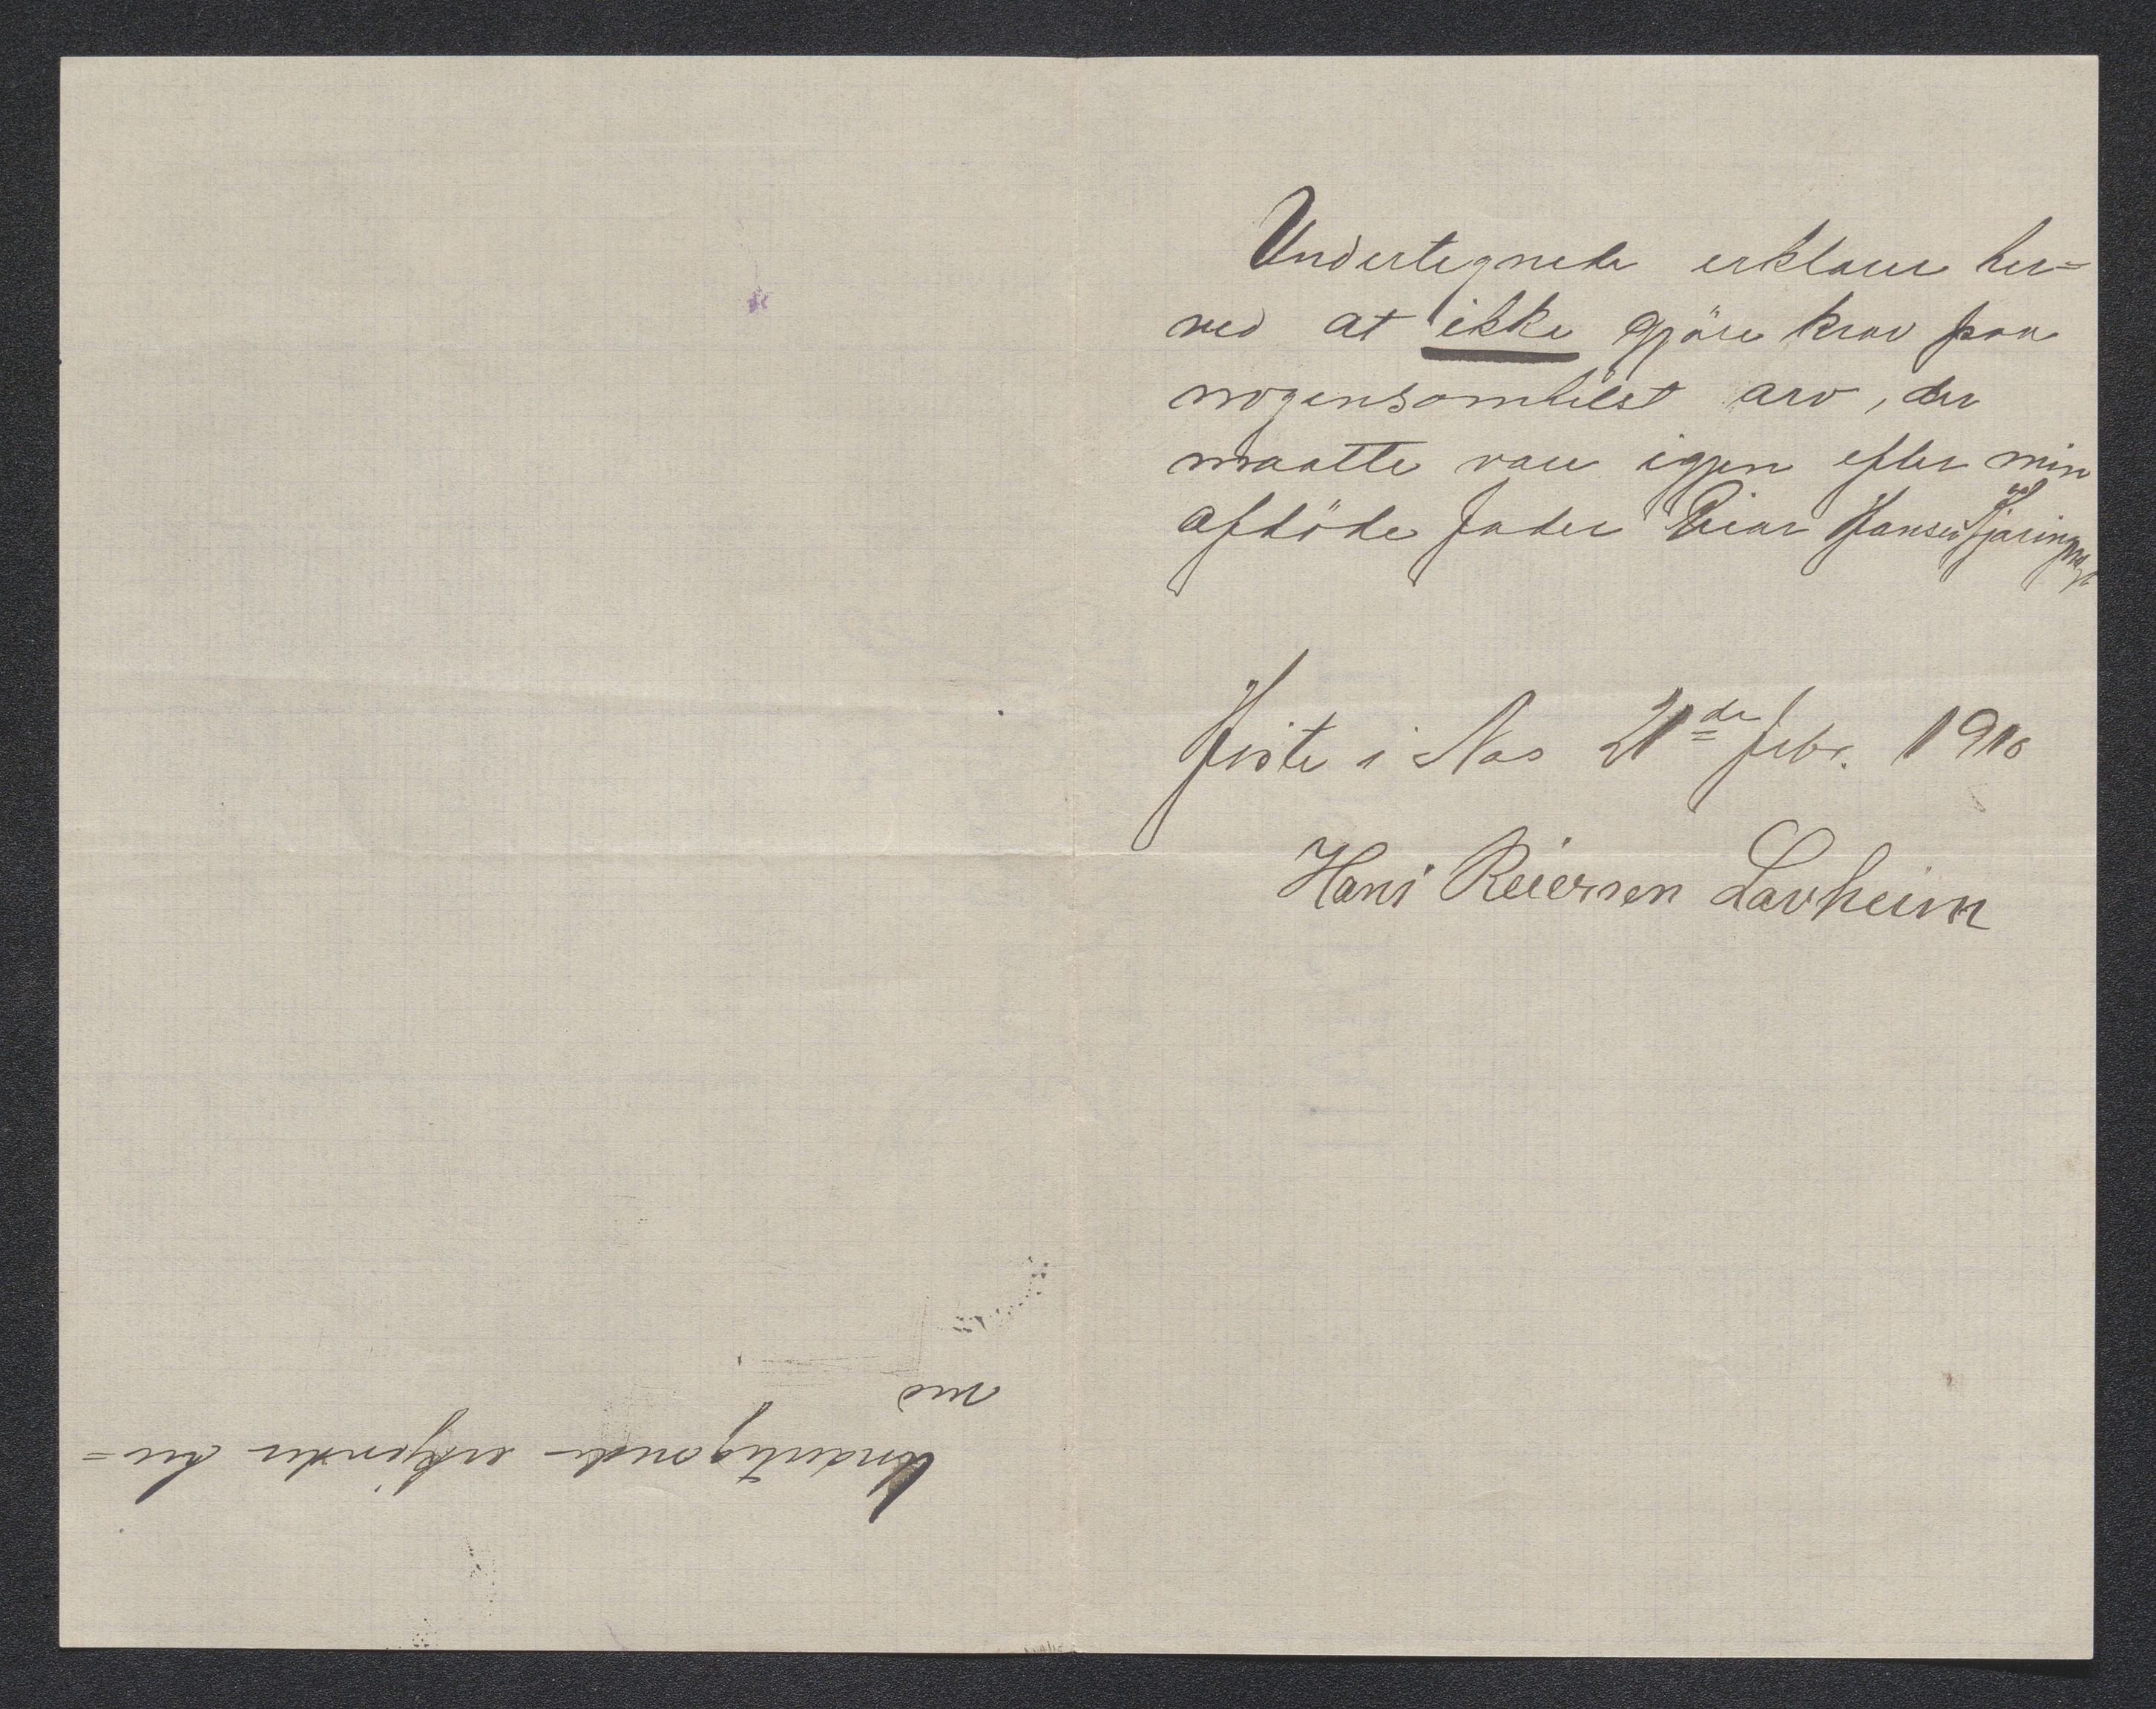 Undertegnede erklærer her=
ved at ikke gjöre krav paa
nogensomhelst arv, der
maatte være igjen efter min
afdöde Fader Reiar Hansen
i Nes 21de Febr. 1910
Hans Reiersen Lavheim
Undertegnede erkjender her=
ved